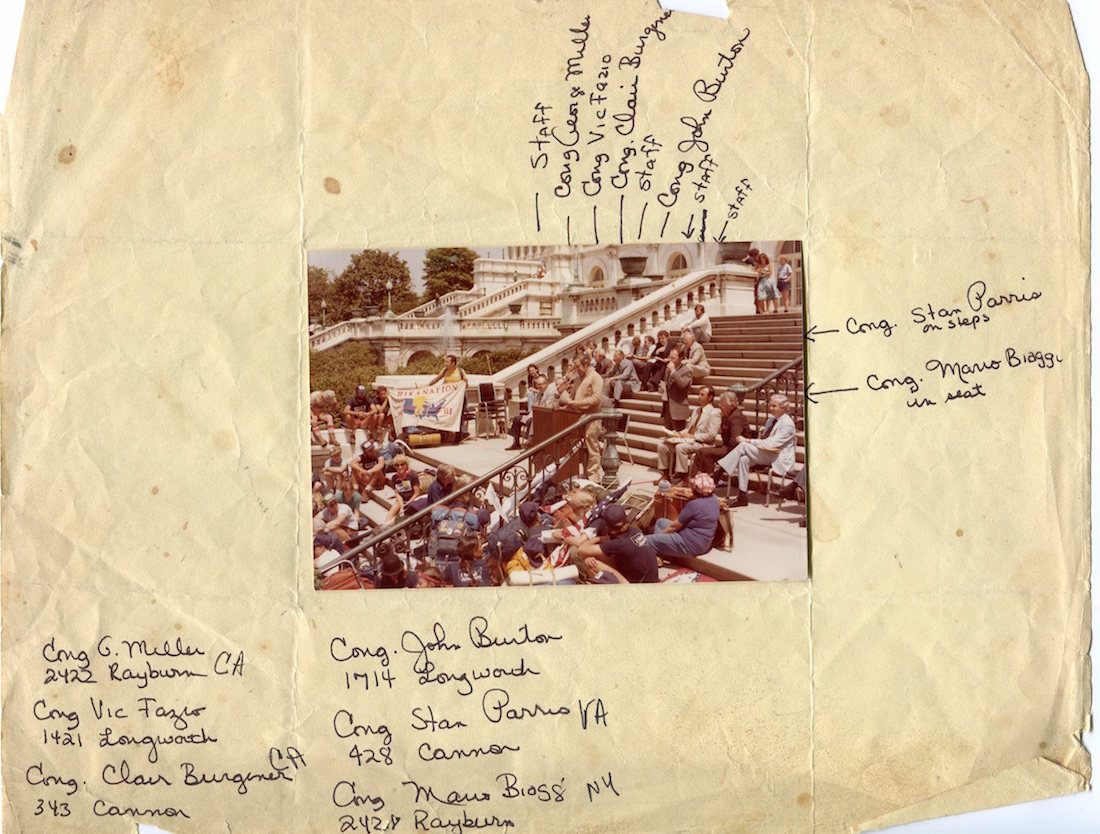 Staff
Cong George Miller
Cong Vic Fazio
Cong. Clair Burgener
Staff
Cong John Burton
Staff
Staff
Cong. Stan Parris
on steps
Cong. Mario Biaggi
in seat
HIKANATION
81
Cong G. Miller
2422 Rayburn CA
Cong Vic Fazio
1421 Longworth
Cong. Clair Burgener CA
343 Cannon
Cong. John Burton
1714 Longworth
Cong Stan Parris VA
428 Cannon
Cong Mario Biagg NY
Rayburn